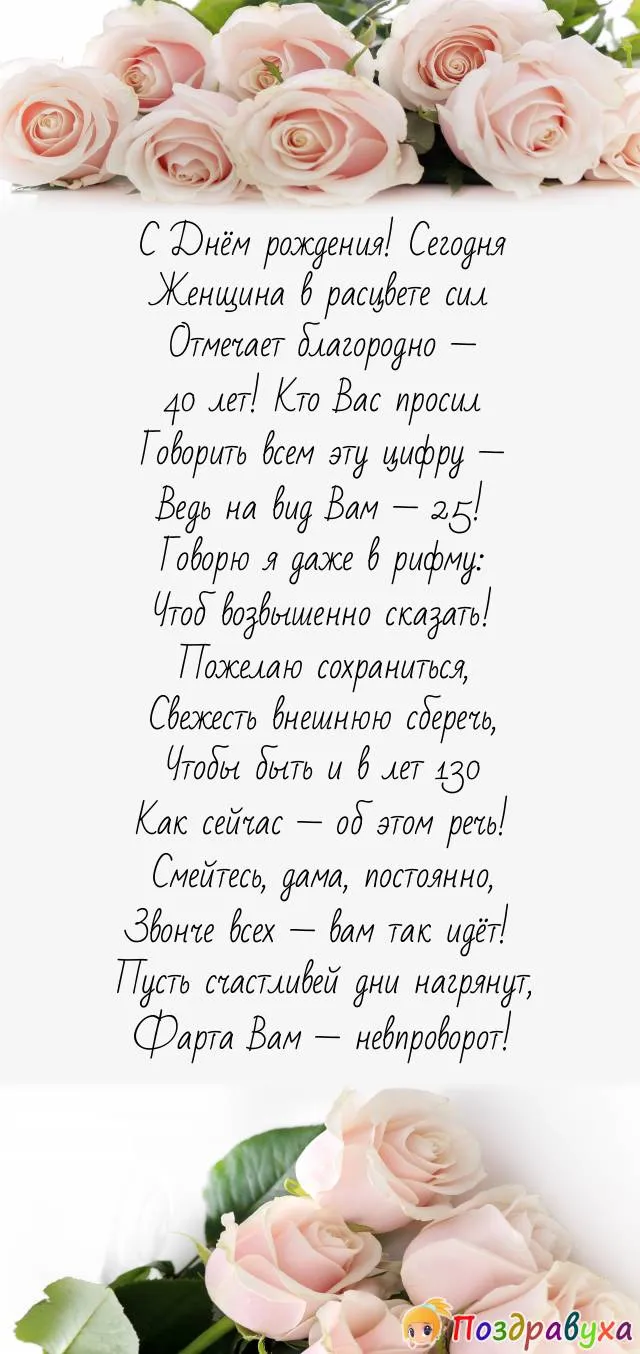 С Днём рождения! Сегодня
Женщина в расцвете сил
Отмечает благородно —
40 лет! Кто Вас просил
Говорить всем эту цифру —
Ведь на вид Вам — 25!
Говорю я даже в рифму:
Чтоб возвышенно сказать!
Пожелаю сохраниться,
Свежесть внешнюю сберечь,
Чтобы быть и в лет 130
Как сейчас — об этом речь!
Смейтесь, дама, постоянно,
Звонче всех — вам так идёт!
Пусть счастливей дни нагрянут,
Фарта Вам — невпроворот!
Поздравуха